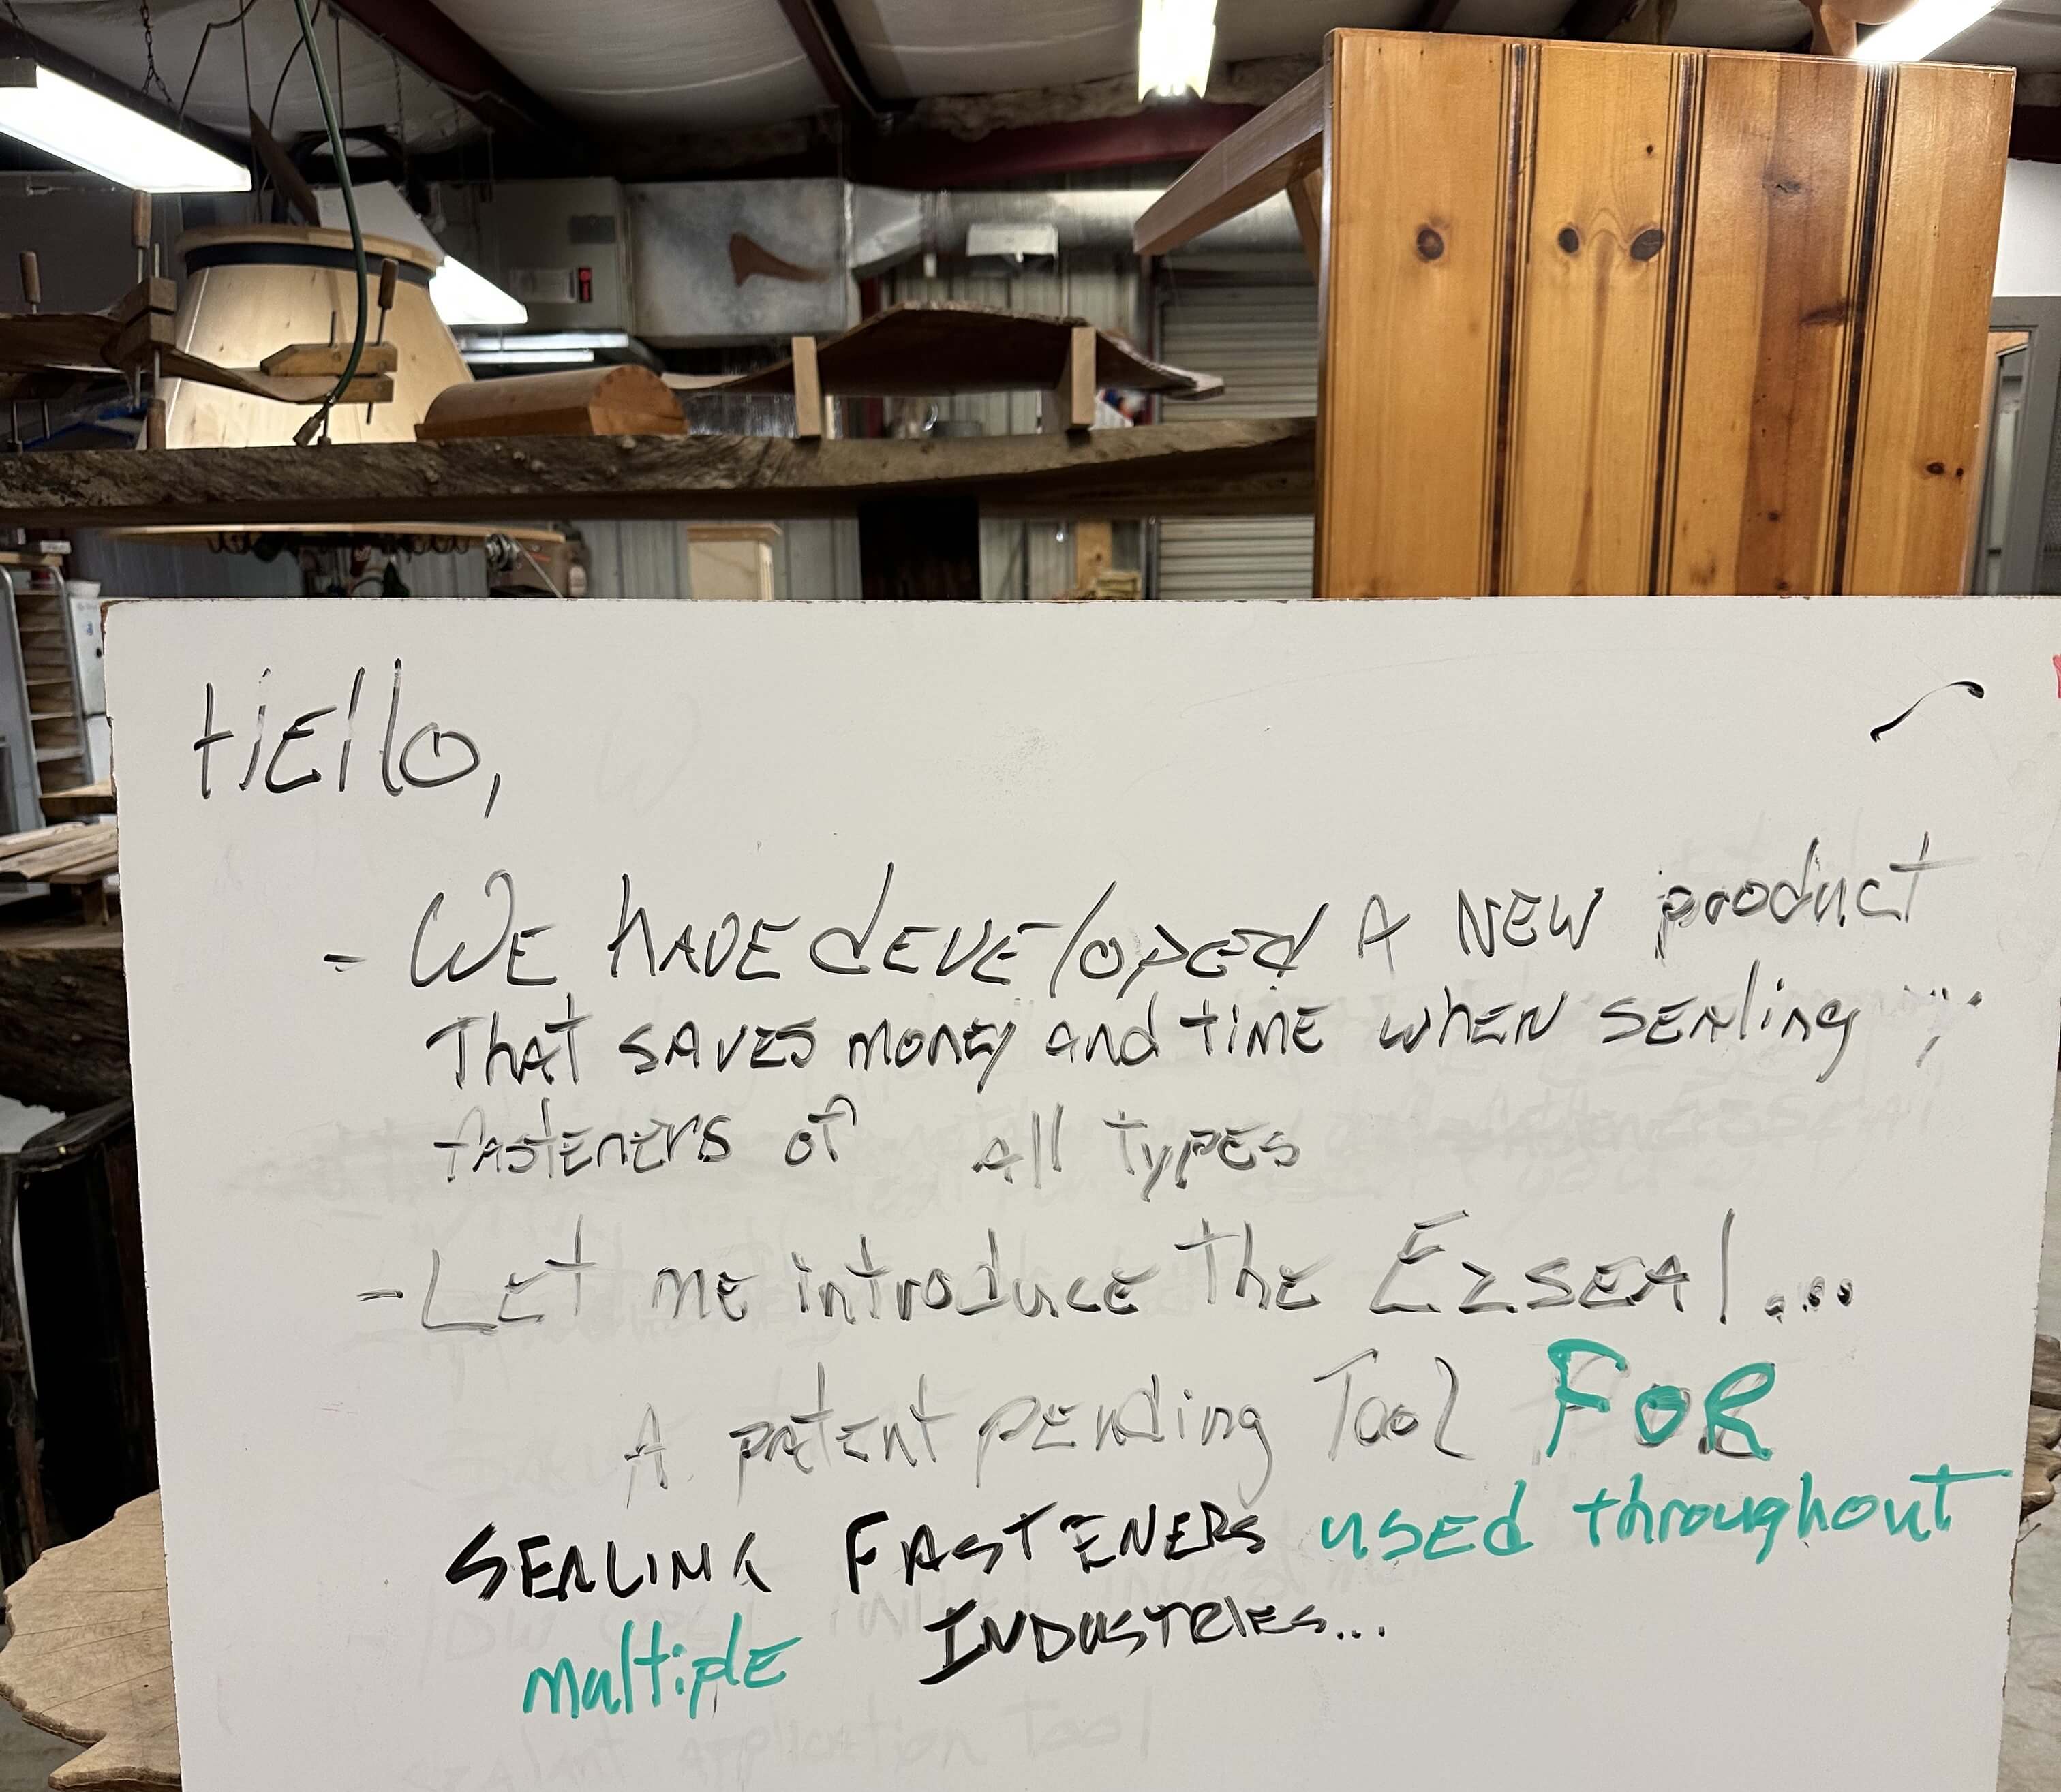 Hello,
- We have developed a new product
That saves money and time when sealing
fasteners of all types
- Let me introduce the Ezseal....
A patent pending Tool FOR
SEALING FASTENERS used throughout
multiple INDUSTRIES...
sealant application Tool